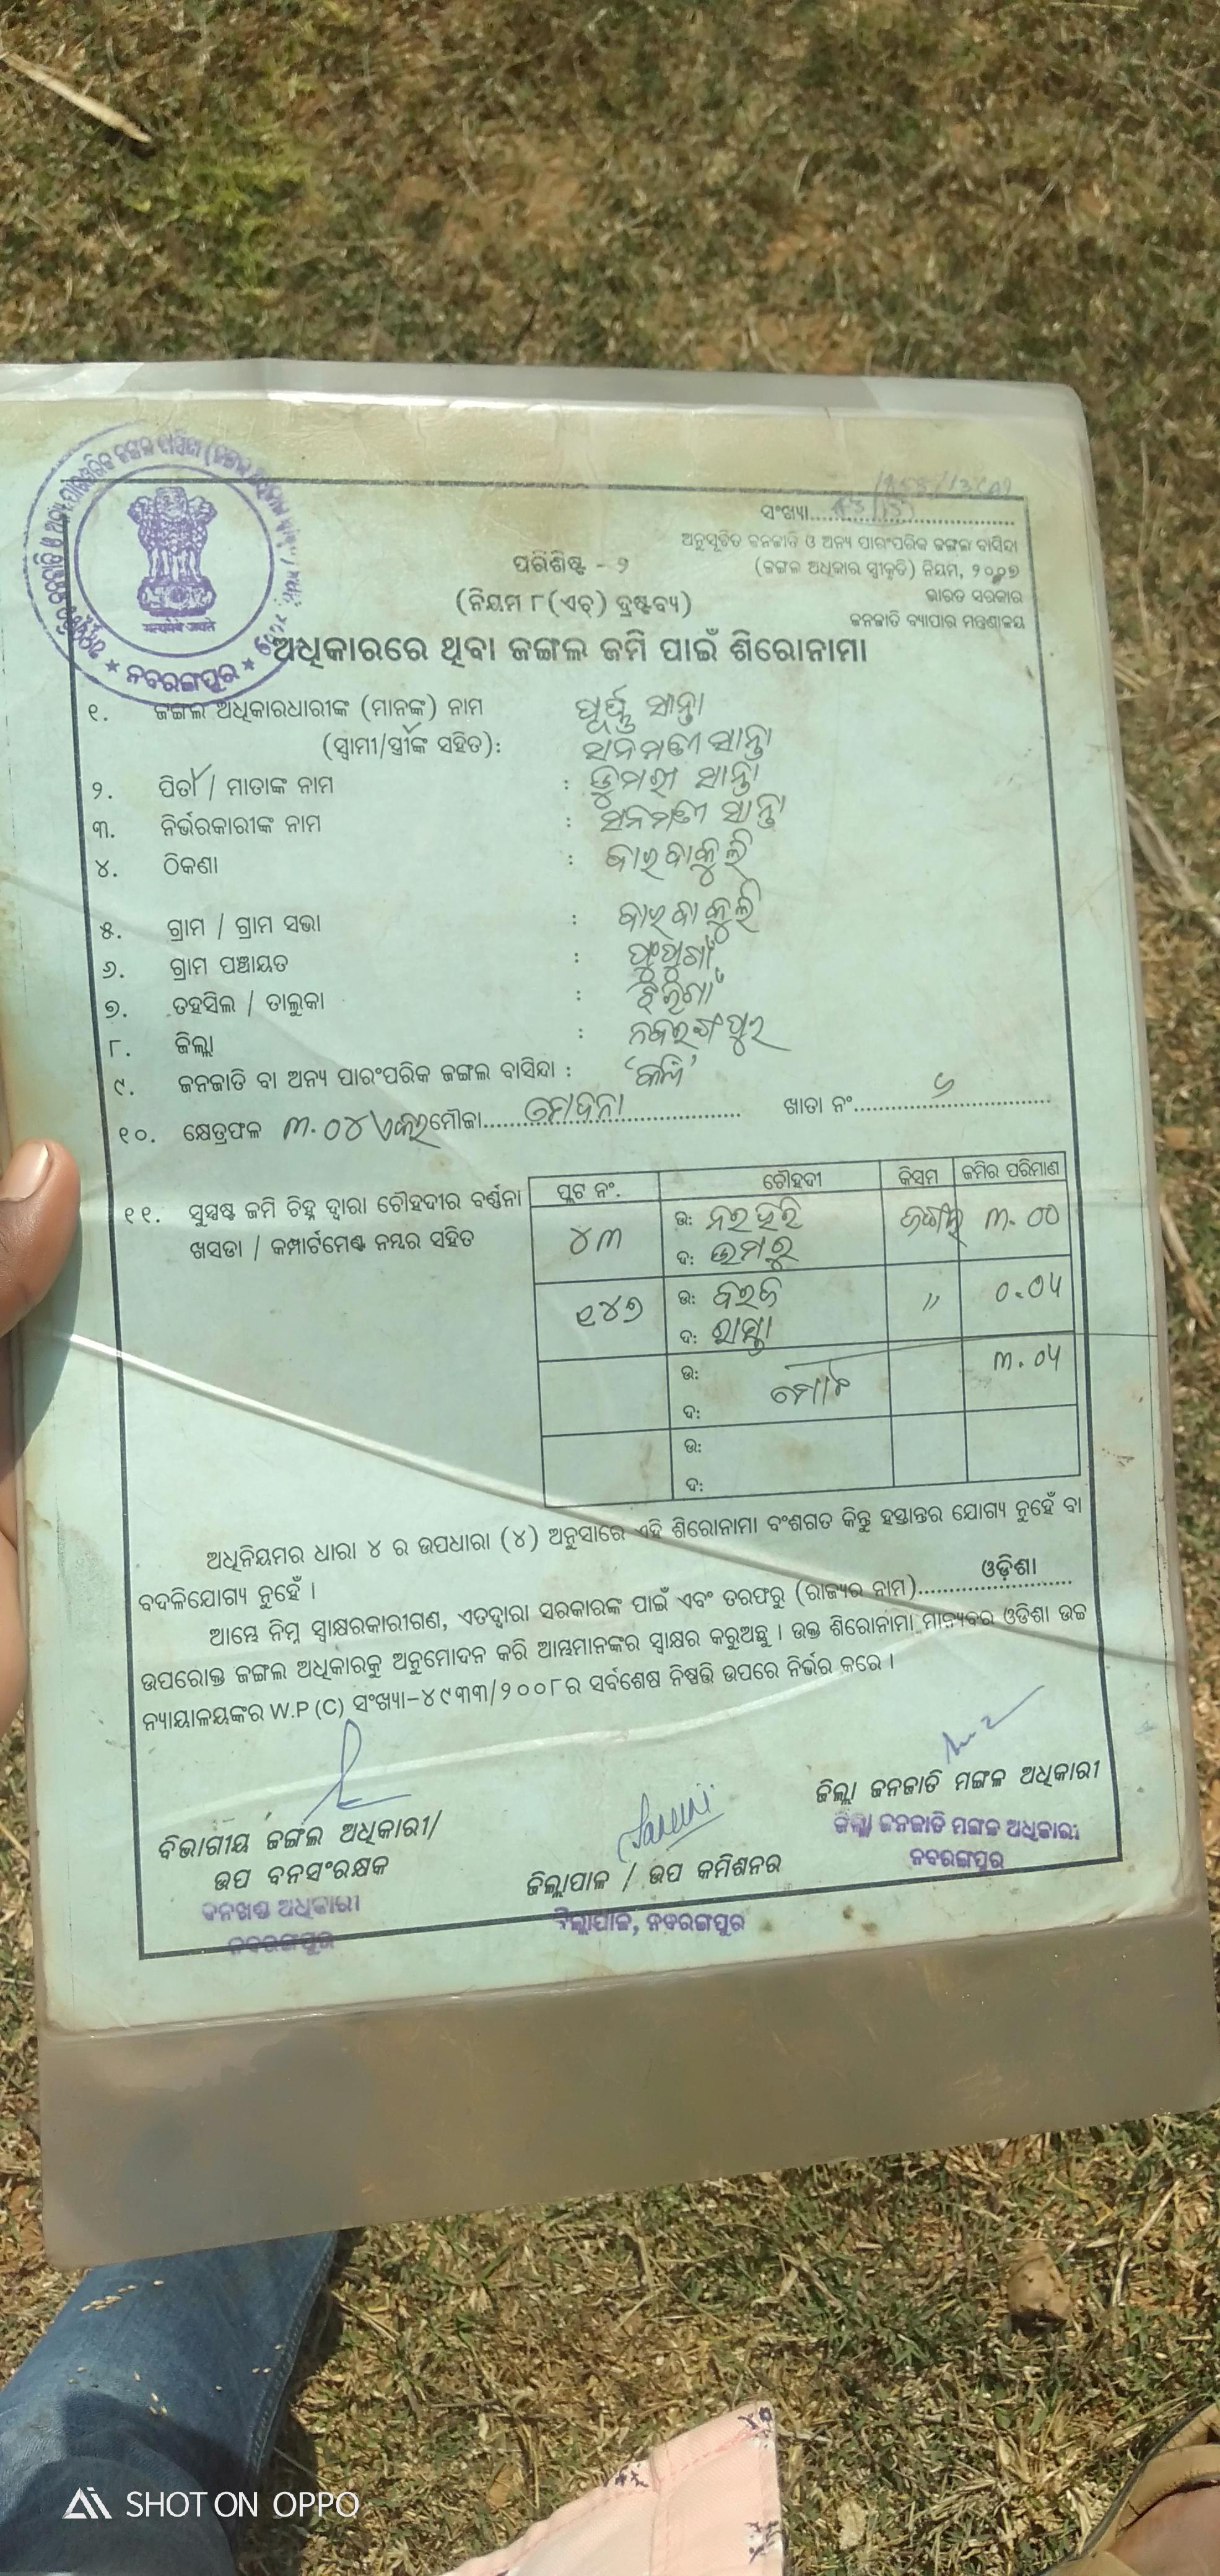 ସଂଖ୍ୟା
ଅନୁସୂଚିତ ଜନଜାତି ଓ ଅନ୍ୟ ପାରଂପରିକ ଜଙ୍ଗଲ ବାସିନ୍ଦା
(ଜଙ୍ଗଲ ଅଧିକାର ସ୍ୱୀକୃତି) ନିୟମ, ୨୦୦୭
ଭାରତ ସରକାର
ଜନଜାତି ବ୍ୟାପାର ମନ୍ତ୍ରଣାଳୟ
सत्यमेव जयते
ନବରଙ୍ଗପୁର
ପରିଶିଷ୍ଟ - ୨
(ନିୟମ ୮(ଏଚ୍) ଦ୍ରଷ୍ଟବ୍ୟ)
ଅଧିକାରରେ ଥିବା ଜଙ୍ଗଲ ଜମି ପାଇଁ ଶିରୋନାମା
୧. ଜଙ୍ଗଲ ଅଧିକାରଧାରୀଙ୍କ (ମାନଙ୍କ) ନାମ ପୂର୍ଣ୍ଣ ସାନ୍ତା
(ସ୍ୱାମୀ/ସ୍ତ୍ରୀଙ୍କ ସହିତ): ସନମତୀ ସାନ୍ତା
୨. ପିତା / ମାତାଙ୍କ ନାମ : ଡୁମରୀ ସାନ୍ତା
୩. ନିର୍ଭରକାରୀଙ୍କ ନାମ : ସନମତୀ ସାନ୍ତା
୪. ଠିକଣା :
୫. ଗ୍ରାମ / ଗ୍ରାମ ସଭା :
୬. ଗ୍ରାମ ପଞ୍ଚାୟତ :
୭. ତହସିଲ / ତାଲୁକା : ଝରିଗାଁ
୮. ଜିଲ୍ଲା : ନବରଙ୍ଗପୁର
୯. ଜନଜାତି ବା ଅନ୍ୟ ପାରଂପରିକ ଜଙ୍ଗଲ ବାସିନ୍ଦା :
୧୦. କ୍ଷେତ୍ରଫଳ ୩.୦୪ ଏକର ମୌଜା ଖାତା ନଂ ୬
୧୧. ସୁସ୍ପଷ୍ଟ ଜମି ଚିହ୍ନ ଦ୍ୱାରା ଚୌହଦୀର ବର୍ଣ୍ଣନା
ଖସଡା / କମ୍ପାର୍ଟମେଣ୍ଟ ନମ୍ବର ସହିତ
ପ୍ଲଟ ନଂ. ଚୌହଦୀ କିସମ ଜମିର ପରିମାଣ
୪୩ ଉ: ନରହରି ଜଙ୍ଗଲ ୩.୦୦
ଦ: ଡମରୁ
୧୪୭ ଉ: " ୦.୦୪
ଦ: ରାସ୍ତା
ଉ: ମୋଟ ୩.୦୪
ଦ:
ଉ:
ଦ:
ଅଧିନିୟମର ଧାରା ୪ ର ଉପଧାରା (୪) ଅନୁସାରେ ଏହି ଶିରୋନାମା ବଂଶଗତ କିନ୍ତୁ ହସ୍ତାନ୍ତର ଯୋଗ୍ୟ ନୁହେଁ ବା
ବଦଳିଯୋଗ୍ୟ ନୁହେଁ ।
ଆମ୍ଭେ ନିମ୍ନ ସ୍ୱାକ୍ଷରକାରୀଗଣ, ଏତଦ୍ଦ୍ୱାରା ସରକାରଙ୍କ ପାଇଁ ଏବଂ ତରଫରୁ (ରାଜ୍ୟର ନାମ) ଓଡ଼ିଶା
ଉପରୋକ୍ତ ଜଙ୍ଗଲ ଅଧିକାରକୁ ଅନୁମୋଦନ କରି ଆମ୍ଭମାନଙ୍କର ସ୍ୱାକ୍ଷର କରୁଅଛୁ । ଉକ୍ତ ଶିରୋନାମା ମାନ୍ୟବର ଓଡିଶା ଉଚ୍ଚ
ନ୍ୟାୟାଳୟଙ୍କର W.P (C) ସଂଖ୍ୟା-୪୯୩୩/୨୦୦୮ର ସର୍ବଶେଷ ନିଷ୍ପତ୍ତି ଉପରେ ନିର୍ଭର କରେ ।
ବିଭାଗୀୟ ଜଙ୍ଗଲ ଅଧିକାରୀ/
ଉପ ବନସଂରକ୍ଷକ
ବନଖଣ୍ଡ ଅଧିକାରୀ
ନବରଙ୍ଗପୁର
ଜିଲ୍ଲାପାଳ / ଉପ କମିଶନର
ଜିଲ୍ଲାପାଳ, ନବରଙ୍ଗପୁର
ଜିଲ୍ଲା ଜନଜାତି ମଙ୍ଗଳ ଅଧିକାରୀ
ଜିଲ୍ଲା ଜନଜାତି ମଙ୍ଗଳ ଅଧିକାରୀ
ନବରଙ୍ଗପୁର
SHOT ON OPPO